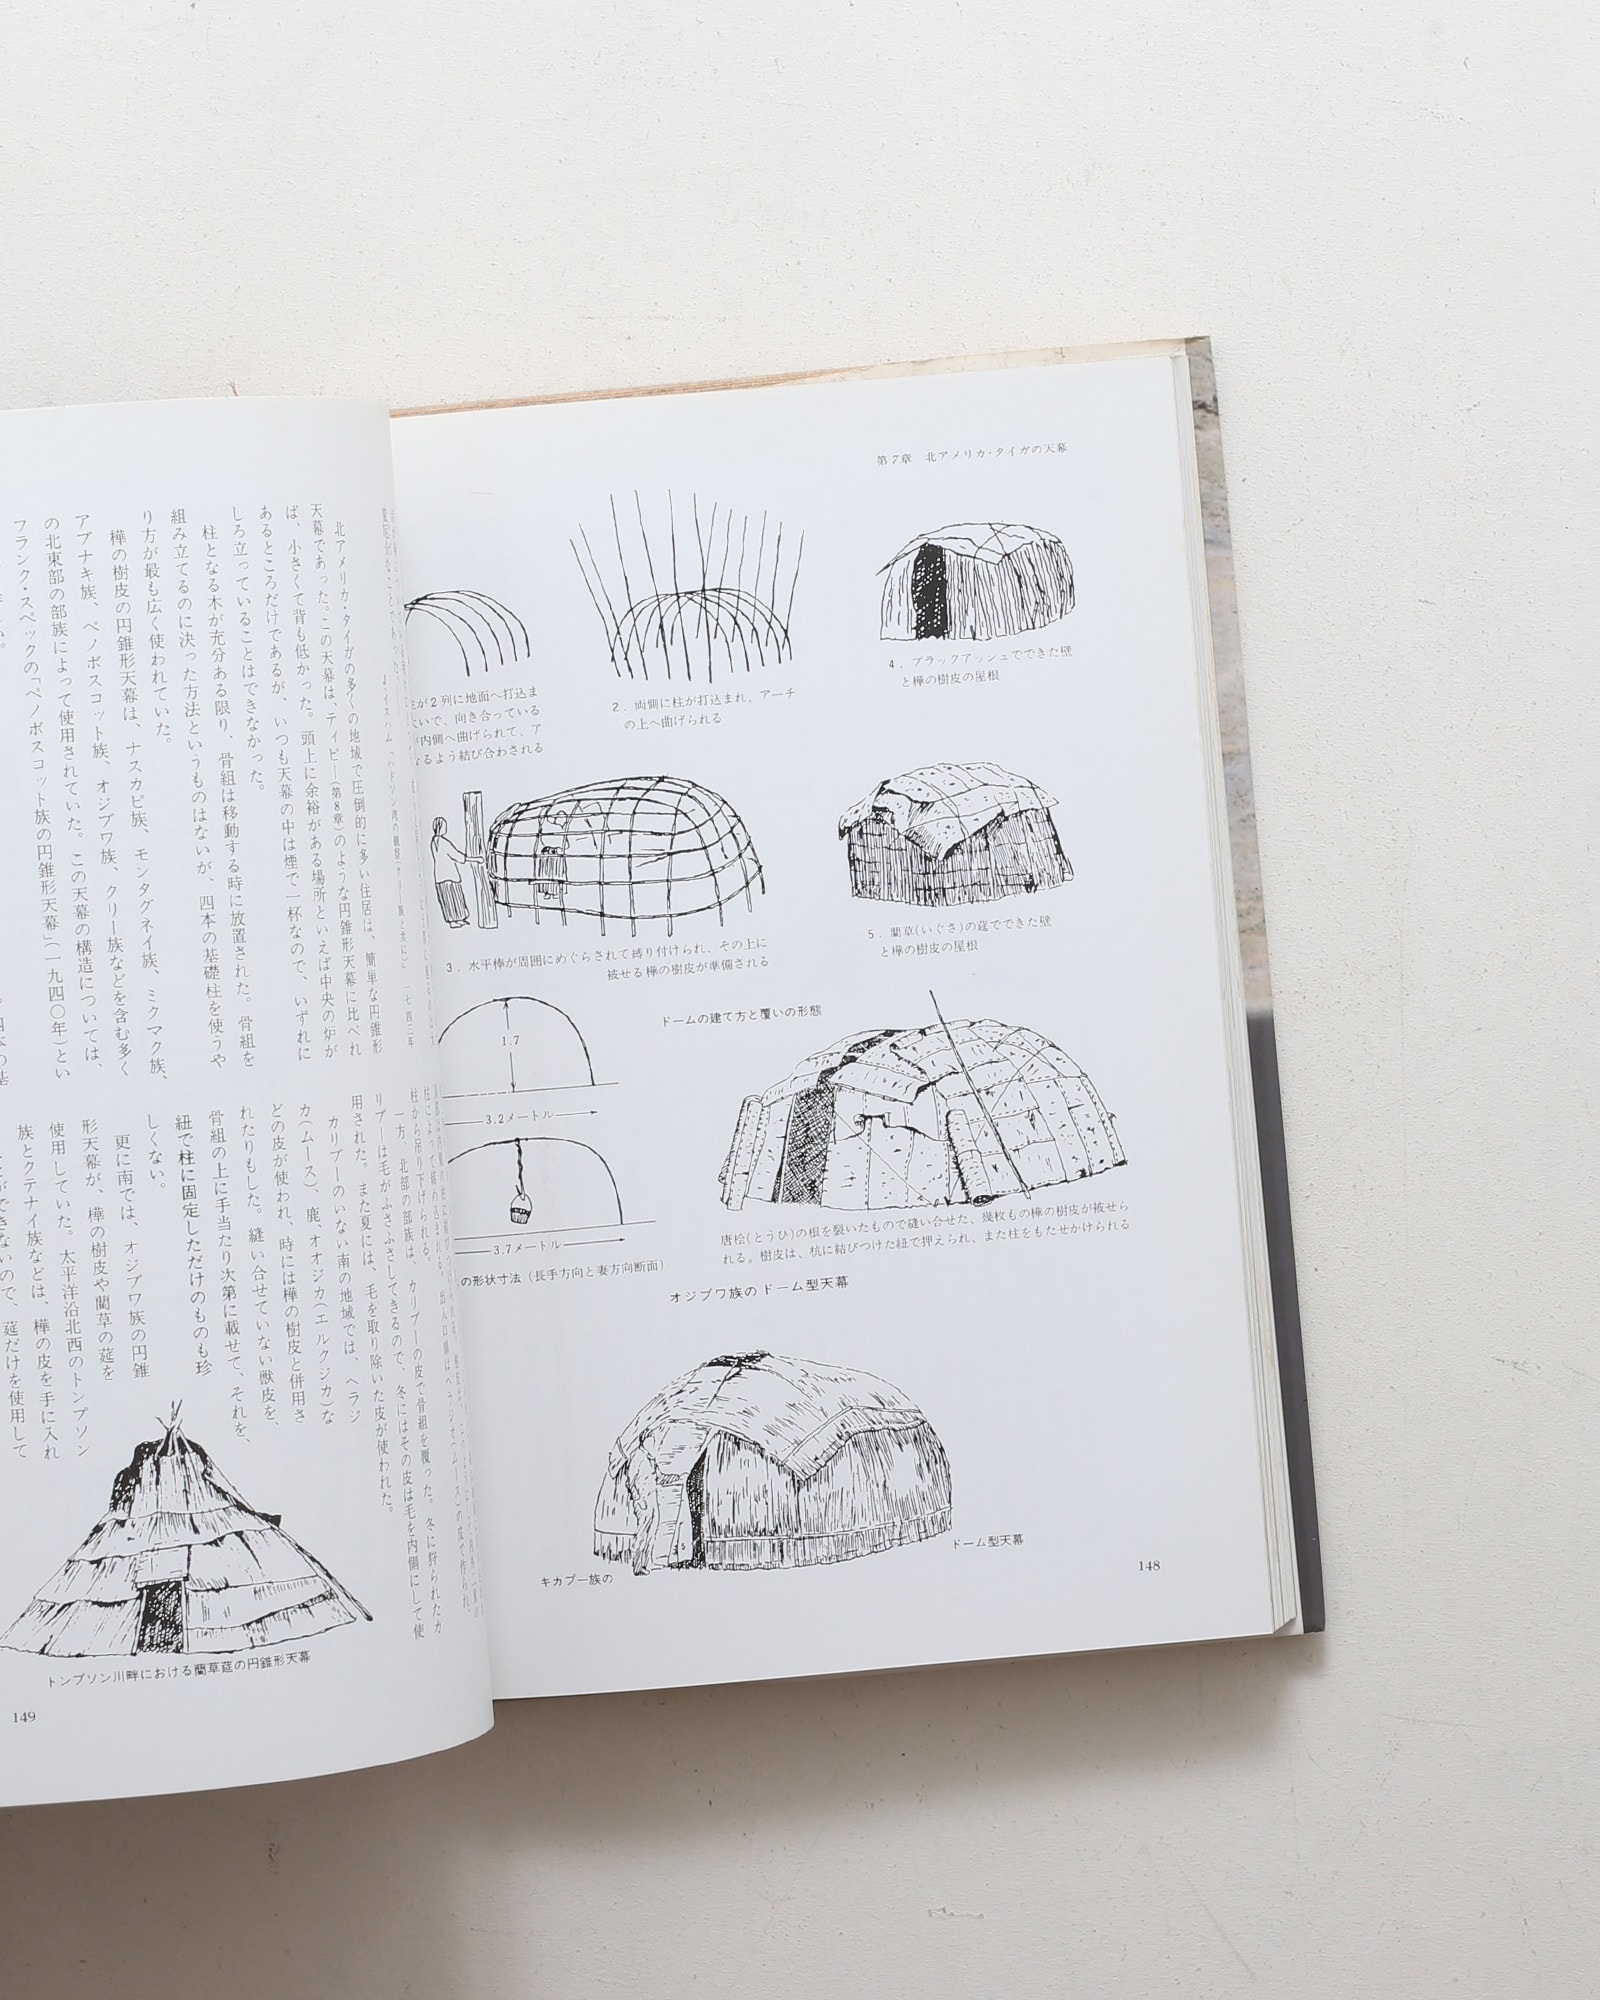 第7章 北アメリカ・タイガの天幕
が2列に地面へ打込ま
いで、向き合っている
内側へ曲げられて、ア
なるよう結び合わされる
2．両側に柱が打込まれ、アーチ
の上へ曲げられる
4．ブラックアッシュでできた壁
と樺の樹皮の屋根
3．水平棒が周囲にめぐらされて縛り付けられ、その上に
被せる樺の樹皮が準備される
5．藺草(いぐさ)の莚でできた壁
と樺の樹皮の屋根
ドームの建て方と覆いの形態
1.7
3.2メートル
3.7メートル
の形状寸法（長手方向と妻方向断面）
唐桧(とうひ)の根を裂いたもので縫い合せた、幾枚もの樺の樹皮が被せら
れる。樹皮は、杭に結びつけた紐で押えられ、また柱をもたせかけられる
オジブワ族のドーム型天幕
キカプー族の
ドーム型天幕
148
北アメリカ・タイガの多くの地域で圧倒的に多い住居は、簡単な円錐形
天幕であった。この天幕は、ティピー(第8章)のような円錐形天幕に比べれ
ば、小さくて背も低かった。頭上に余裕がある場所といえば中央の炉が
あるところだけであるが、いつも天幕の中は煙で一杯なので、いずれに
しろ立っていることはできなかった。
柱となる木が充分ある限り、骨組は移動する時に放置された。骨組を
組み立てるのに決った方法というものはないが、四本の基礎柱を使うや
り方が最も広く使われていた。
樺の樹皮の円錐形天幕は、ナスカピ族、モンタグネイ族、ミクマク族、
アブナキ族、ペノボスコット族、オジブワ族、クリー族などを含む多く
の北東部の部族によって使用されていた。この天幕の構造については、
フランク・スペックの「ペノボスコット族の円錐形天幕」(一九四〇年)とい
柱によって締め込まれる。
柱から吊り下げられる。
一方、北部の部族は、カリブーの皮で骨組を覆った。冬に狩られたカ
リブーは毛がふさふさしてきるので、冬にはその皮は毛を内側にして使
用された。また夏には、毛を取り除いた皮が使われた。
カリブーのいない南の地域では、ヘラジ
カ(ムース)、鹿、オオジカ(エルクジカ)な
どの皮が使われ、時には樺の樹皮と併用さ
れたりもした。縫い合せていない獣皮を、
骨組の上に手当たり次第に載せて、それを、
紐で柱に固定しただけのものも珍
しくない。
更に南では、オジブワ族の円錐
形天幕が、樺の樹皮や藺草の莚を
使用していた。太平洋沿北西のトンプソン
族とクテナイ族などは、樺の皮を手に入れ
ができないので、莚だけを使用して
トンプソン川畔における藺草莚の円錐形天幕
149